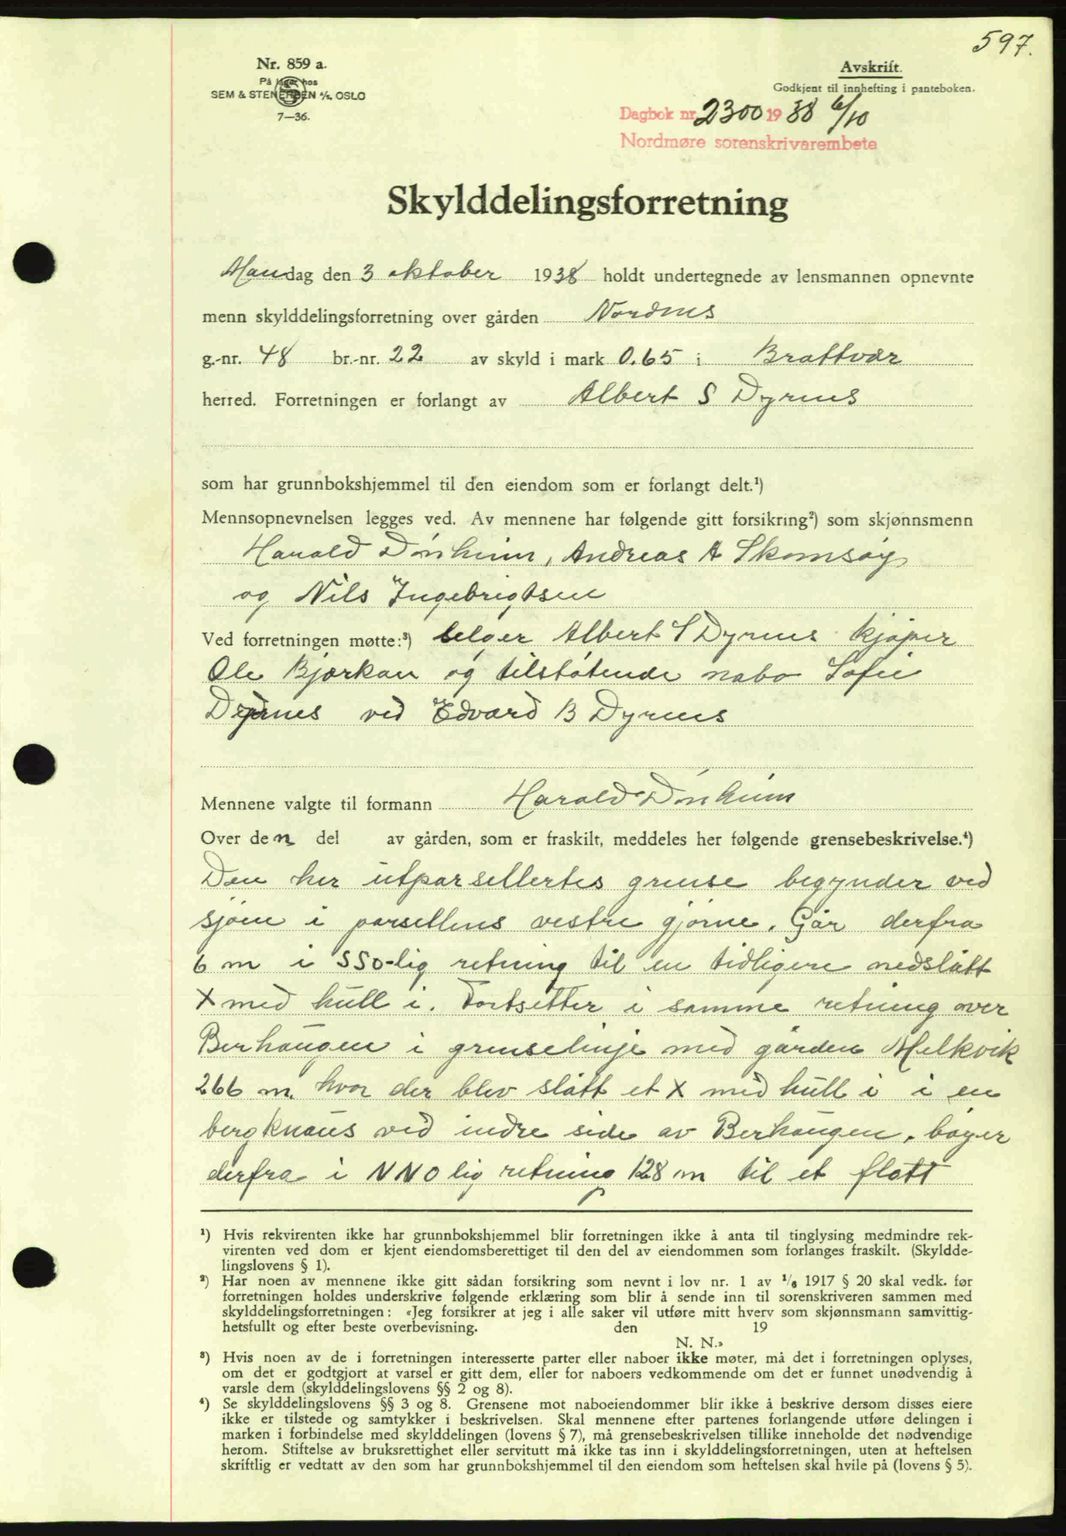 597.
Nr. 859 a.
På lager hos
SEM & STENERSEN A/S, OSLO
7—36.
Avskrift.
Godkjent til innhefting i panteboken.
Dagbok nr. 2300 1938 6/10
Nordmøre sorenskrivarembete
Skylddelingsforretning
Mandag den 3 oktober 1938 holdt undertegnede av lensmannen opnevnte
menn skylddelingsforretning over gården Nordnes
g.-nr. 48 br.-nr. 22 av skyld i mark 0.65 i Brattvær
herred. Forretningen er forlangt av Albert S Dyrnes
som har grunnbokshjemmel til den eiendom som er forlangt delt.¹)
Mennsopnevnelsen legges ved. Av mennene har følgende gitt forsikring²) som skjønnsmenn
Harald Dónheim, Andreas A Skomsøy
og Nils Ingebrigtsen
Ved forretningen møtte:³) Selger Albert S Dyrnes kjøper
Ole Bjørkan og tilstøtende nabo Sofie
Dyrnes ved Edvard B Dyrnes
Mennene valgte til formann Harald Dónheim
Over den del av gården, som er fraskilt, meddeles her følgende grensebeskrivelse.⁴)
Den her utparsellertes grense begynder ved
sjøen i parsellens vestre hjørne. Går derfra
6 m i SSO-lig retning til en tidligere nedslått
X med hull i. Fortsetter i samme retning over
Berhaugen i grenselinje med gården Melkvik
266 m. hvor der blev slått et X med hull i i en
bergknaus ved indre side av Berhaugen. bøyer
derfra i NNO lig retning 128 m til et flatt
¹) Hvis rekvirenten ikke har grunnbokshjemmel blir forretningen ikke å anta til tinglysing medmindre rek-
virenten ved dom er kjent eiendomsberettiget til den del av eiendommen som forlanges fraskilt. (Skyldde-
lingslovens § 1).
²) Har noen av mennene ikke gitt sådan forsikring som nevnt i lov nr. 1 av 1/6 1917 § 20 skal vedk. før
forretningen holdes underskrive følgende erklæring som blir å sende inn til sorenskriveren sammen med
skylddelingsforretningen: «Jeg forsikrer at jeg i alle saker vil utføre mitt hverv som skjønnsmann samvittig-
hetsfullt og efter beste overbevisning. den 19
N. N.»
³) Hvis noen av de i forretningen interesserte parter eller naboer ikke møter, må det i forretningen oplyses,
om det er godtgjort at varsel er gitt dem, eller for naboers vedkommende om det er funnet unødvendig å
varsle dem (skylddelingslovens §§ 2 og 8).
⁴) Se skylddelingslovens §§ 3 og 8. Grensene mot naboeiendommer blir ikke å beskrive dersom disses eiere
ikke er tilstede og samtykker i beskrivelsen. Skal mennene efter partenes forlangende utføre delingen i
marken i forbindelse med skylddelingen (lovens § 7), må grensebeskrivelsen tillike inneholde det nødvendige
herom. Stiftelse av bruksrettighet eller servitutt må ikke tas inn i skylddelingsforretningen, uten at heftelsen
skriftlig er vedtatt av den som har grunnbokshjemmel til den eiendom som heftelsen skal hvile på (lovens § 5).